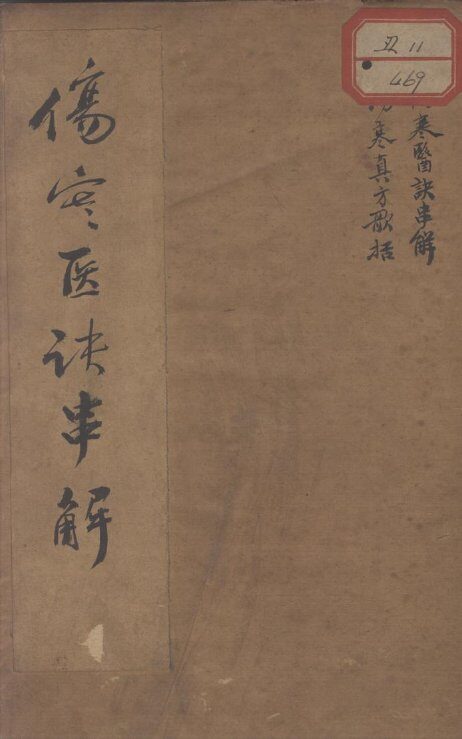 丑 11
469
寒醫訣串解
寒真方歌括
傷寒医訣串解